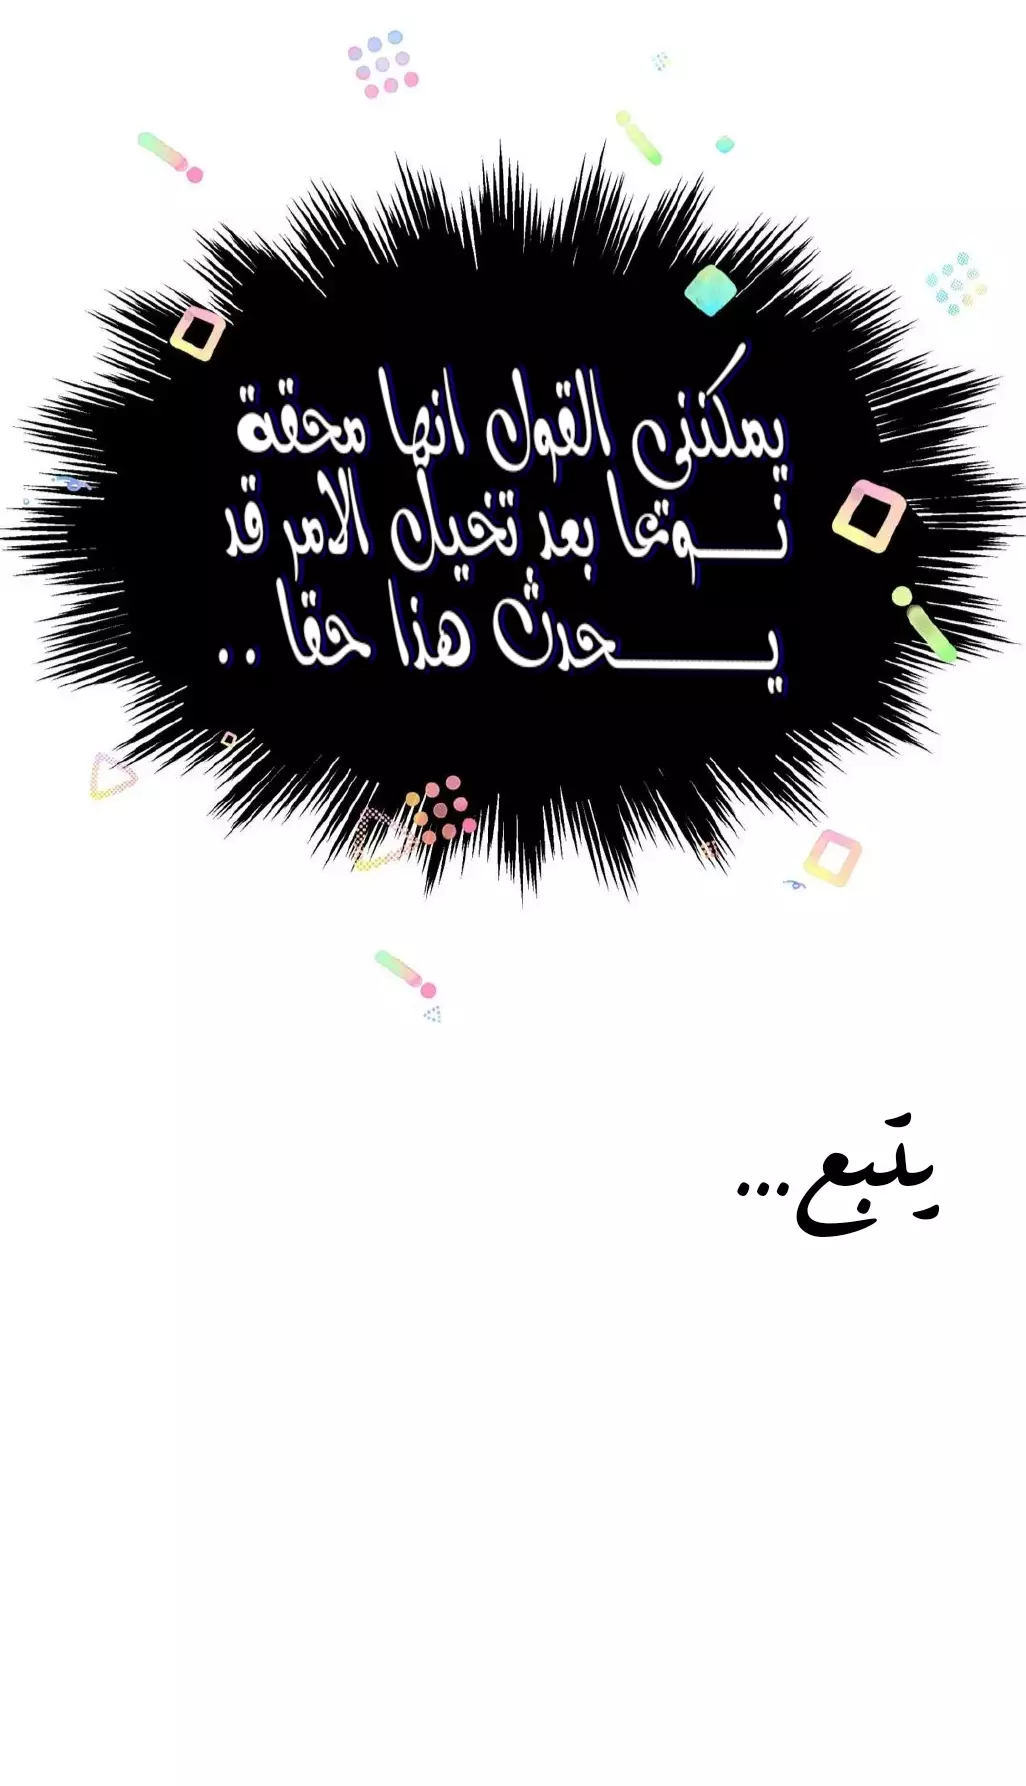 يمكنني القول انها محقة
نـــوعا بعد تخيل الامر قد
يـــــحدث هذا حقا ..
يتبع...